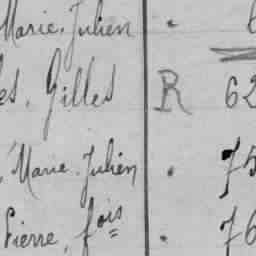 Marie. Julien . 6
es, Gilles R 62
Marie. Julien . 75
Pierre, fois . 76